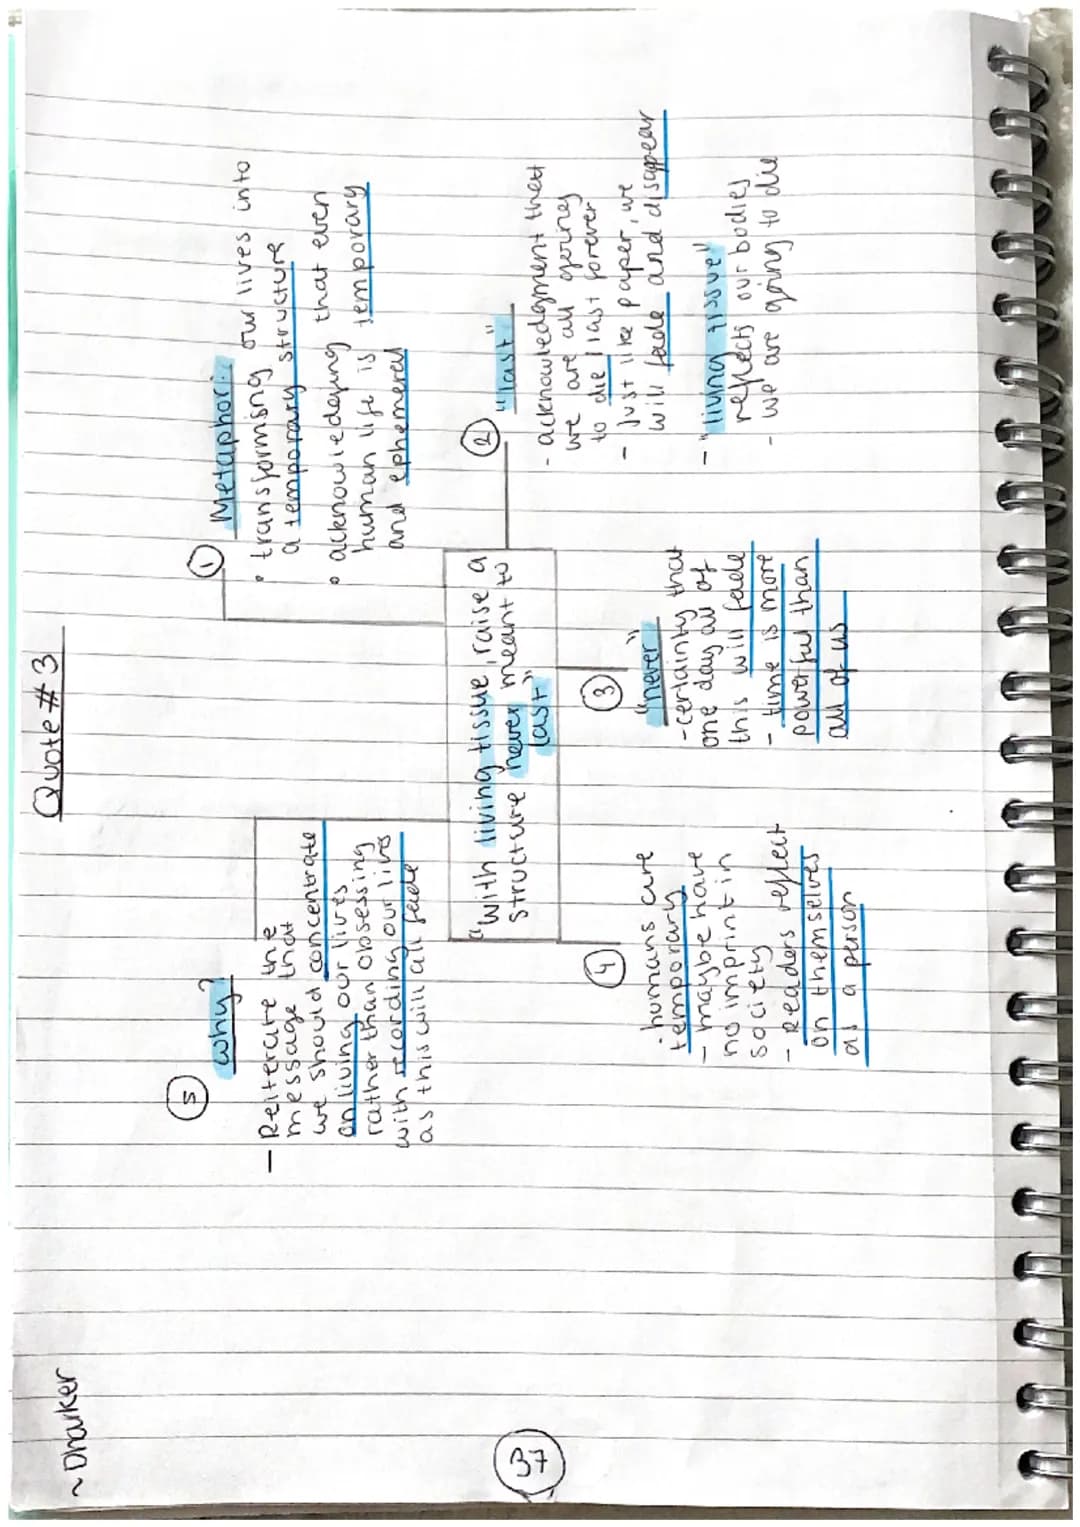 ~ Dharker
Quote #3
① Metaphor:
• transforming our lives into
a temporary structure
• acknowledging that even
human life is temporary
and ephemeral
② "last"
- acknowledgment that
we are all going
to die / last forever
- Just like paper, we
will fade and disappear
- "living tissue"
reflects our bodies
- we are going to die
"With living tissue, raise a
structure never meant to
last"
③ "never"
- certainty that
one day all of
this will fade
- time is more
powerful than
all of us
④
- humans are
temporary
- maybe have
no imprint in
society
- Readers reflect
on themselves
as a person
⑤ why?
- Reiterate the
message that
we should concentrate
on living our lives
rather than obsessing
with recording our lives
as this will all fade
37